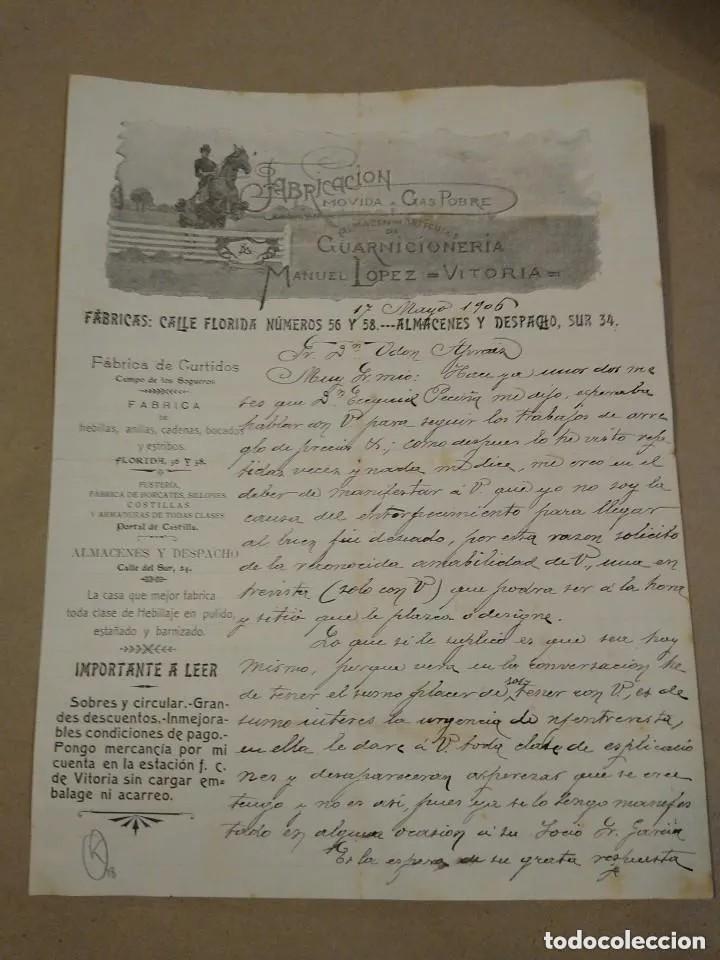 Fabricación
movida a Gas Pobre
y
Almacén de Artículos
de
Guarnicionería
Manuel López = Vitoria =
17 Mayo 1906
FÁBRICAS: CALLE FLORIDA NÚMEROS 56 Y 58.---ALMACENES Y DESPACHO, SUR 34.
Fábrica de Curtidos
Campo de los Sogueros
FABRICA
DE
hebillas, anillas, cadenas, bocados
y estribos.
FLORIDA, 56 Y 58.
FUSTERÍA,
FÁBRICA DE HORCATES, SILLONES,
COSTILLAS
Y ARMADURAS DE TODAS CLASES
Portal de Castilla.
ALMACENES Y DESPACHO
Calle del Sur, 34.
La casa que mejor fabrica
toda clase de Hebillaje en pulido,
estañado y barnizado.
IMPORTANTE A LEER
Sobres y circular.-Gran-
des descuentos.-Inmejora-
bles condiciones de pago.-
Pongo mercancía por mi
cuenta en la estación f. c.
de Vitoria sin cargar em-
balage ni acarreo.
Sr. Dn Odon Apraiz
Muy Sr mio: Hace ya unos dos me
ses que Dn Ecequiel Peciña me dijo, esperaba
hablar con V. para seguir los trabajos de arre
glo de precios &; como despues lo he visto repe
tidas veces y nada me dice, me creo en el
deber de manifestar á V. que yo no soy la
causa del entorpecimiento para llegar
al buen fin deseado, por esta razon solicito
de la reconocida amabilidad de V., una en
trevista (solo con V) que podra ser á la hora
y sitio que le plazca ó designe.
Lo que si le suplico es que sea hoy
mismo, porque vera en la conversacion he
de tener el sumo placer de solo tener con V, es de
sumo interes la urgencia de entrevista,
en ella le dare á V. toda clase de esplicacio
nes y desapareceran asperezas que se cree
tengo y no es así, pues ya se lo tengo manifes
tado en alguna ocasion á su Socio Sr. Garcia
En la espera de su grata respuesta
18
todocoleccion
todocoleccion.net